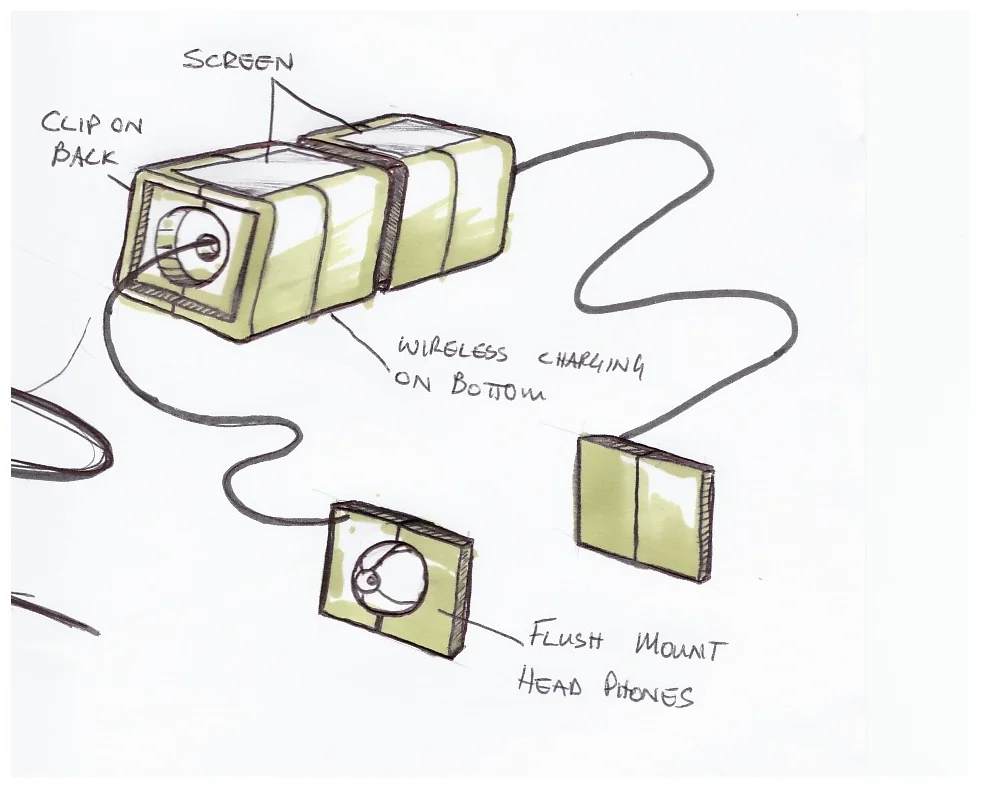 SCREEN
CLIP ON
BACK
WIRELESS CHARGING
ON BOTTOM
FLUSH MOUNT
HEAD PHONES